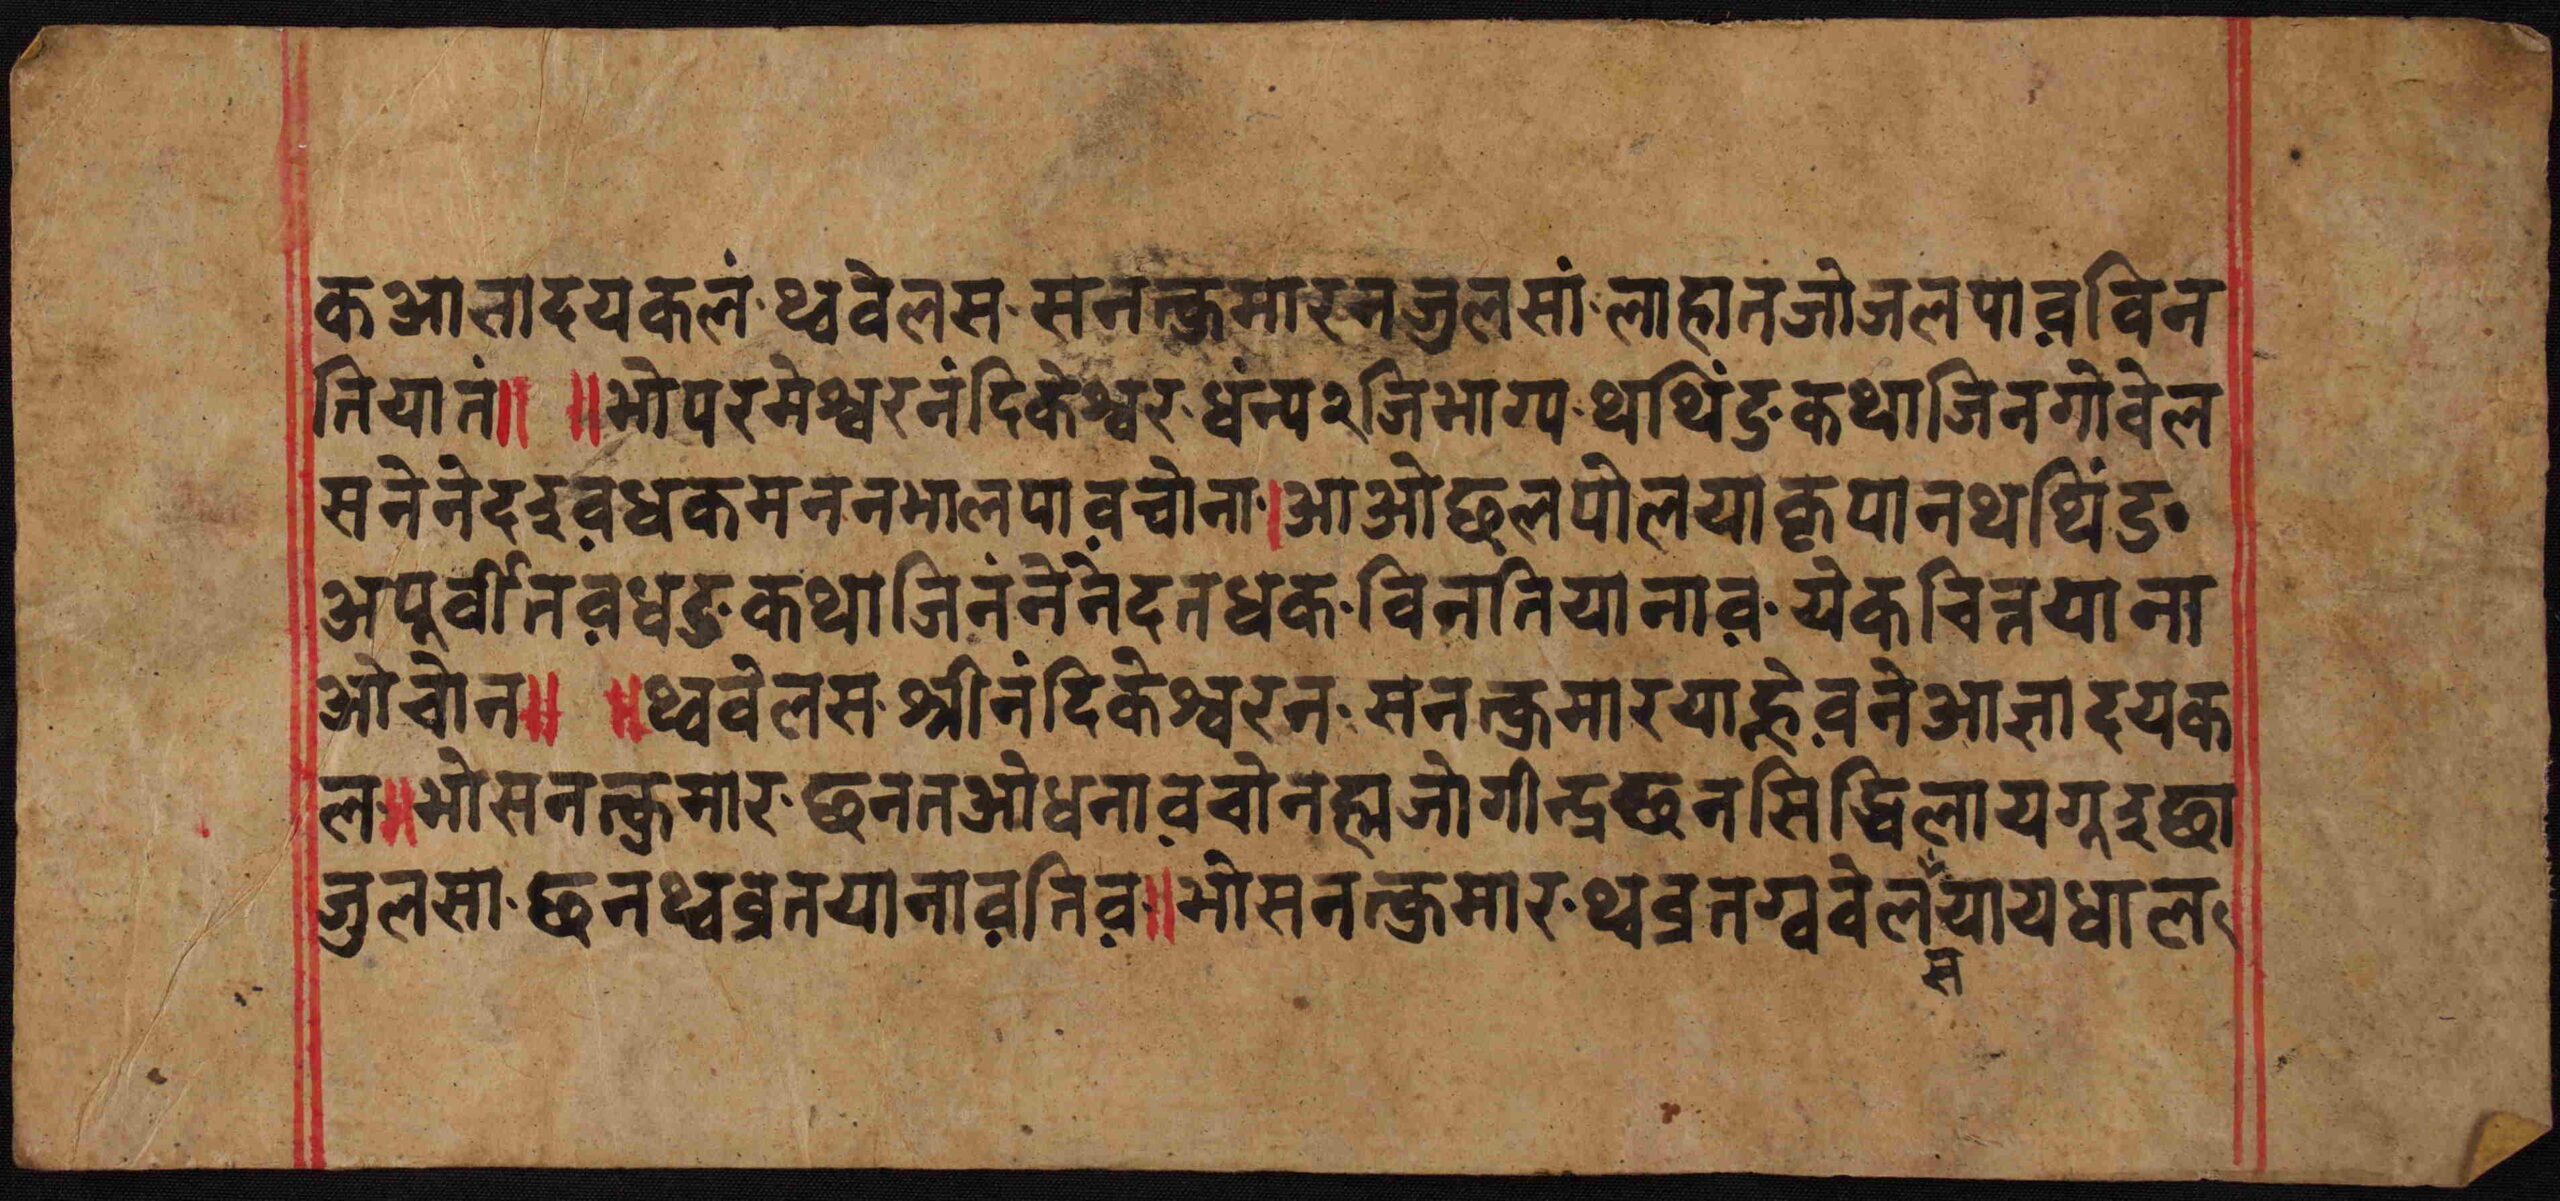 कआज्ञादयकलं·थ्ववेलस·सनत्कुमारनजुलसां·लाहातजोजलपाव़विन
तियातं॥ ॥भोपरमेश्वरनंदिकेश्वर·धंन्य२जिभाग्य·थथिंङकथाजिनगोवेल
सनेनेददुव़धकमननभालपाव़चोना।आओछलपोलयाकृपानथथिंङ·
अपूर्वीनव़धङकथाजिनंनेनेदतधक·विनतियानाव़·येकचित्तयाना
ओचोन॥ ॥थ्ववेलस·श्रीनंदिकेश्वरन·सनत्कुमारयाह्नेव़नेआज्ञादयक
ल·॥भोसनत्कुमार·छनतओधनाव़चोनह्मजोगीन्द्रछनसिद्धिलायगूदुछा
जुलसा·छनथ्वव्रतयानाव़तिव़·॥भोसनत्कुमार·थ्वव्रतग्ववेलसयायधाल